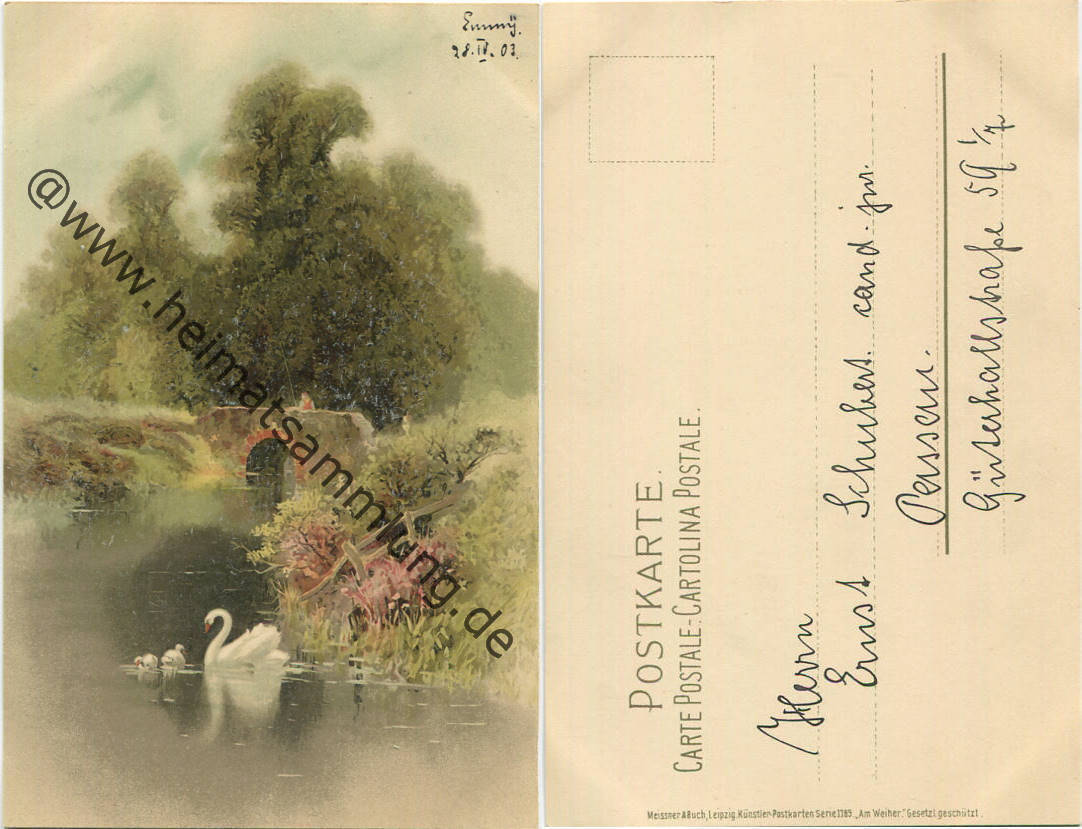 Emmÿ.
28.IV.03.
@www.heimatsammlung.de
POSTKARTE.
CARTE POSTALE.-CARTOLINA POSTALE.
Herrn
Ernst Schubert cand. jur.
Güterhallstraße 59
Meissner & Buch, Leipzig. Künstler-Postkarten Serie 1185 „Am Weiher.“ Gesetzl. geschützt.